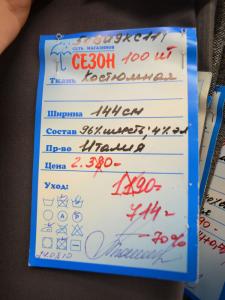 СЕТЬ МАГАЗИНОВ
СЕЗОН 100 шт
Ткань Костюмная
Ширина 144см
Состав 96% шерсть, 4% эл
Пр-во Италия
Цена 2.380-
Уход: 1190-
714-
-70%